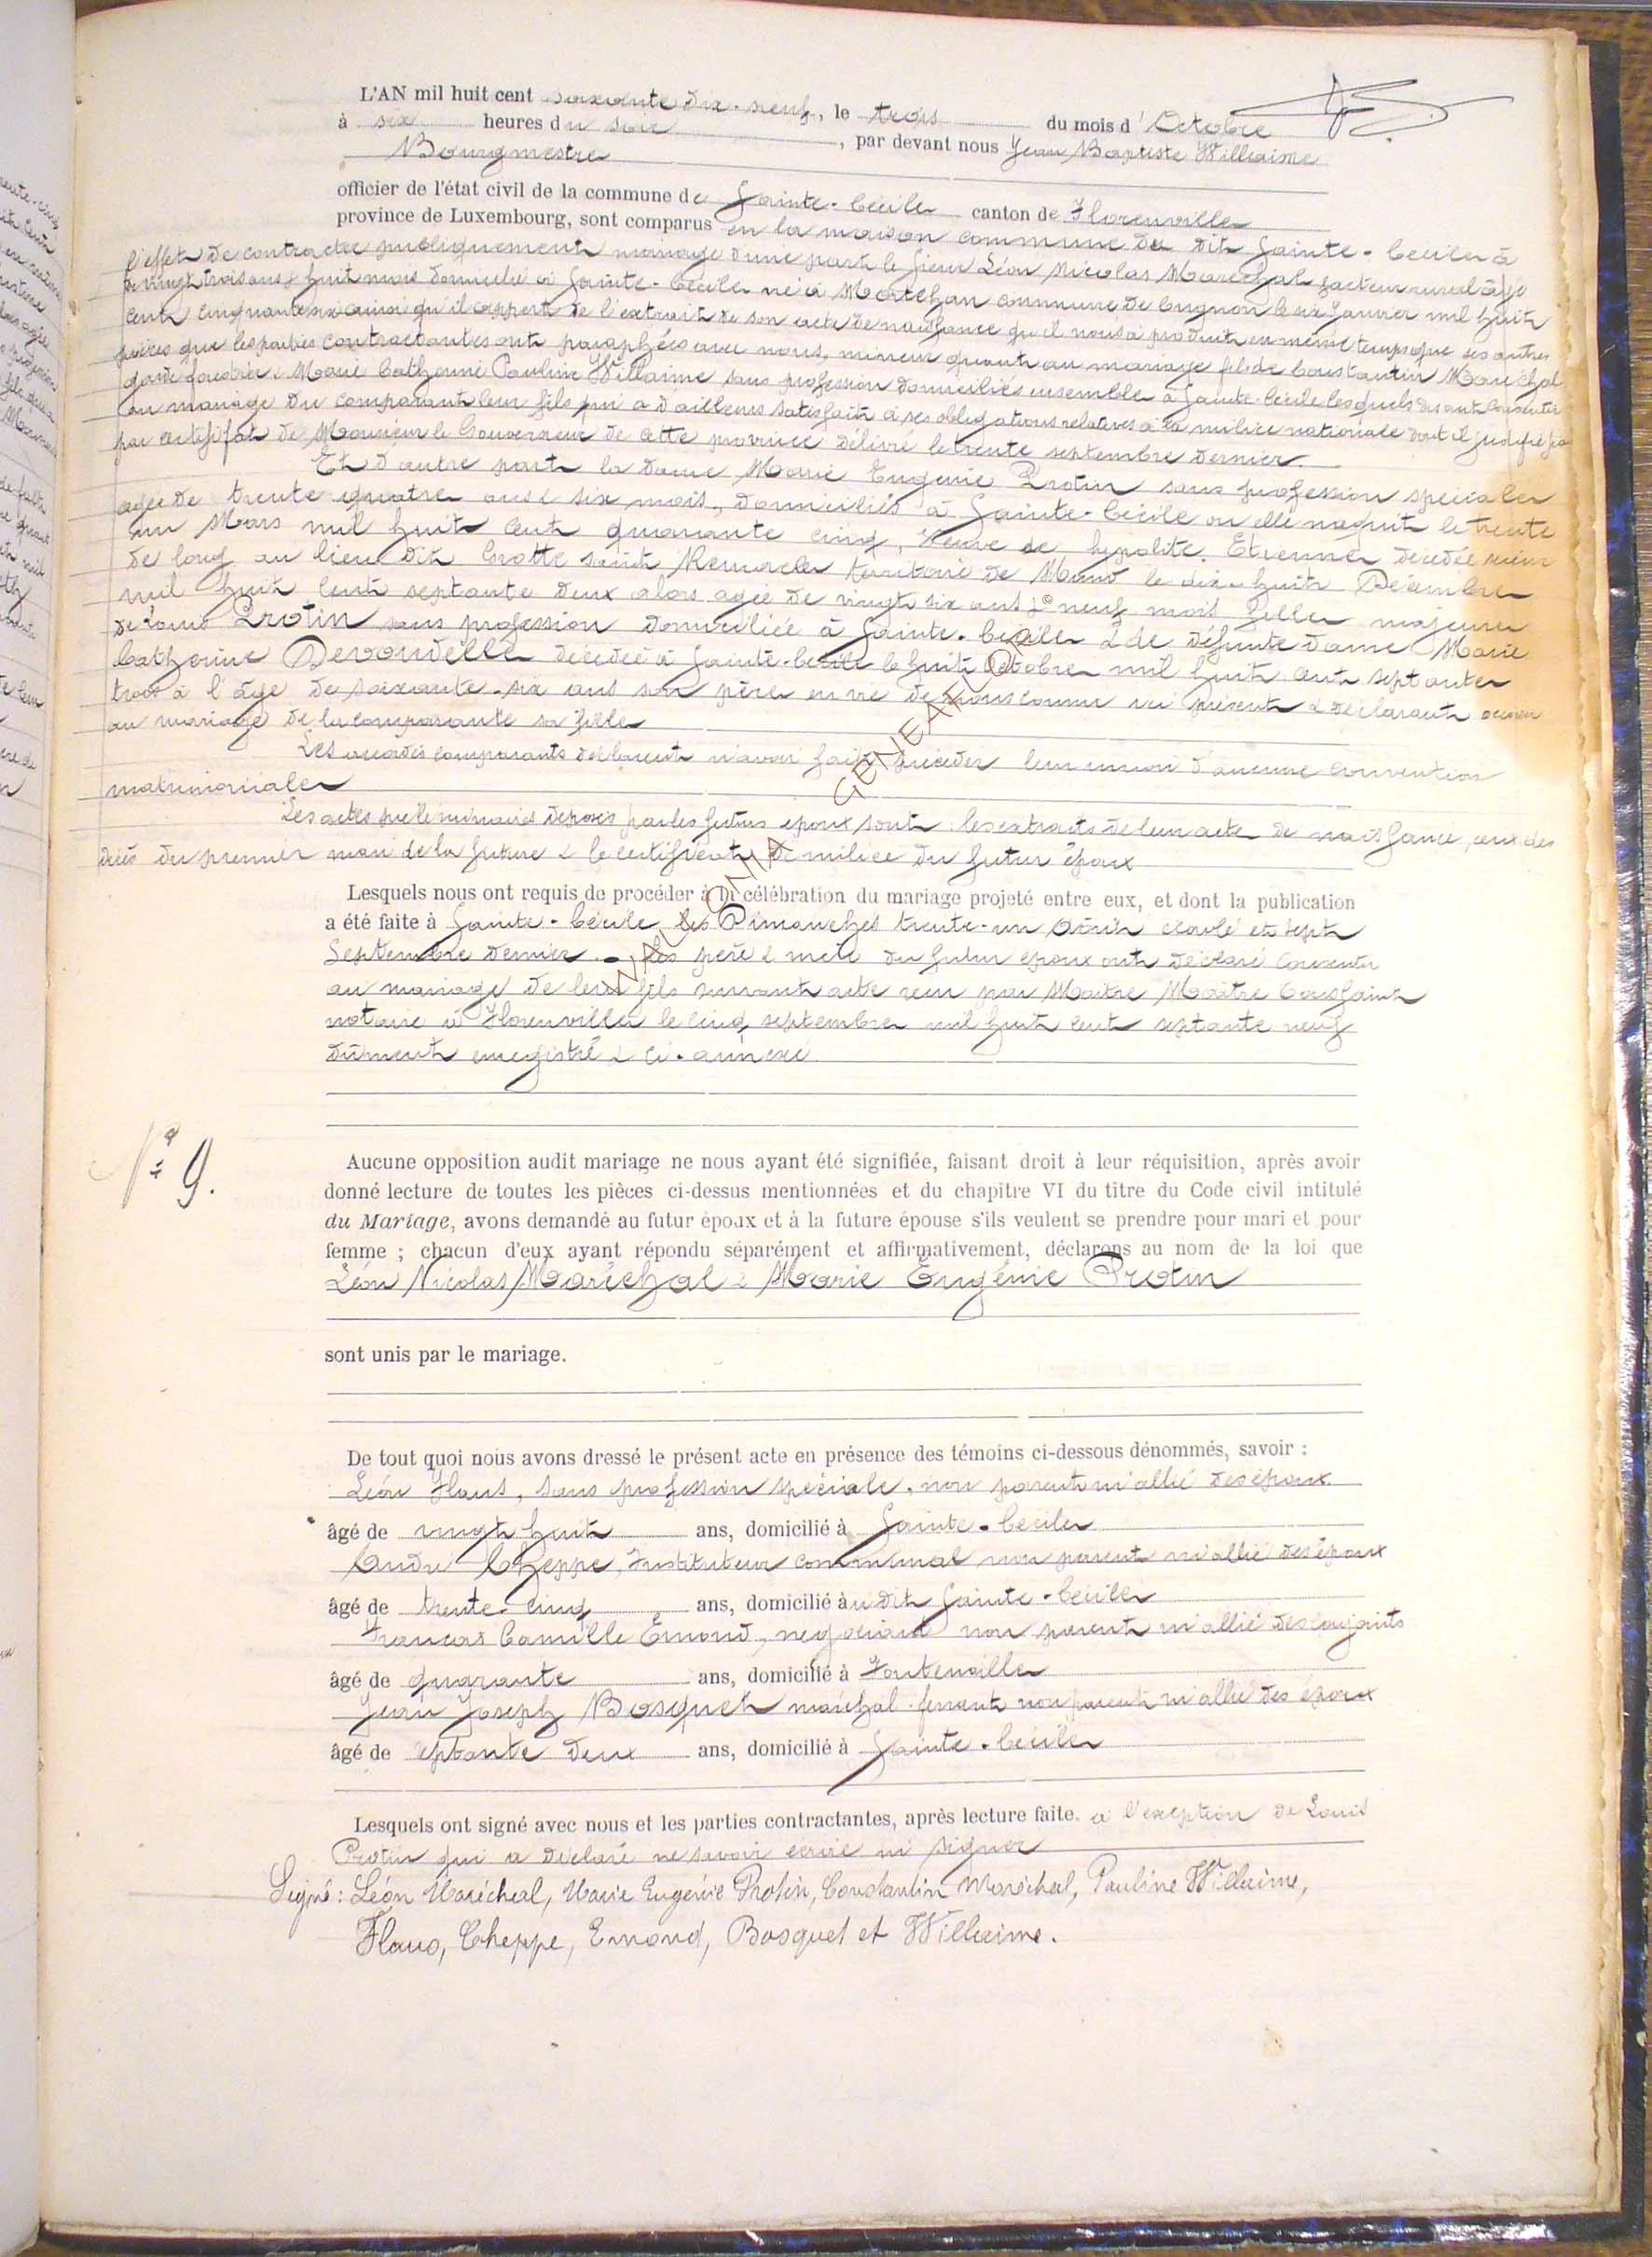 L'AN mil huit cent soixante dix-neuf, le trois du mois d'Octobre
à six heures du soir, par devant nous Jean Baptiste Willaime
Bourgmestre
officier de l'état civil de la commune de Sainte-Cécile canton de Florenville
province de Luxembourg, sont comparus en la maison commune du dit Sainte-Cécile à
l'effet de contracter publiquement mariage d'une part le sieur Léon Nicolas Maréchal facteur rural âgé
de vingt trois ans & huit mois domicilié à Sainte-Cécile né à Mortehan commune de Cugnon le Janvier mil huit
cent cinquante six ainsi qu'il appert de l'extrait de son acte de naissance qu'il nous a produit en même temps que ses autres
pièces que les parties contractantes ont paraphées avec nous, mineur quant au mariage fils de Constantin Maréchal
garde forestier & Marie Catherine Pauline Willaime sans profession domiciliés ensemble à Sainte-Cécile lesquels consentir
au mariage du comparant leur fils qui a d'ailleurs satisfait à ses obligations relatives à la milice nationale dont il justifie
par certificat de Monsieur le Gouverneur de cette province délivré le trente septembre dernier.
Et d'autre part la dame Marie Eugénie Protin sans profession spéciale
agée de trente quatre ans & six mois, domiciliée à Sainte-Cécile où elle naquit le trente
un Mars mil huit cent quarante cinq, Veuve de hypolite Etienne décédé
de long au lieu dit Crotte saint Remacle territoire de le dix-huit Décembre
mil huit cent septante deux alors agée de vingt six ans & neuf mois fille majeure
de Louis Protin sans profession domiciliée à Sainte-Cécile & de défunte dame Marie
Catherine Devoudelle décédée à Sainte-Cécile le huit Octobre mil huit cent septante
trois à l'âge de soixante-six ans son père en vie de nous connu ici présent & déclarant
au mariage de la comparante sa fille
Les susdits comparants déclarent n'avoir fait précéder leur union d'aucune convention
matrimoniale
Les actes préliminaires déposés par les futurs époux sont: les extraits de leur acte de naissance, ceux des
décès du premier mari de la future & le certificat de milice du futur époux
Lesquels nous ont requis de procéder à la célébration du mariage projeté entre eux, et dont la publication
a été faite à Sainte-Cécile les Dimanches trente-un Août écoulé et sept
Septembre dernier. Les père & mère du futur époux ont déclaré consentir
au mariage de leur fils suivant acte reçu par Maître Maître Toussaint
notaire à Florenville le cinq septembre mil huit cent septante neuf
dûment enregistré & ci-annexé
N° 9.
Aucune opposition audit mariage ne nous ayant été signifiée, faisant droit à leur réquisition, après avoir
donné lecture de toutes les pièces ci-dessus mentionnées et du chapitre VI du titre du Code civil intitulé
du Mariage, avons demandé au futur époux et à la future épouse s'ils veulent se prendre pour mari et pour
femme ; chacun d'eux ayant répondu séparément et affirmativement, déclarons au nom de la loi que
Léon Nicolas Maréchal & Marie Eugénie Protin
sont unis par le mariage.
De tout quoi nous avons dressé le présent acte en présence des témoins ci-dessous dénommés, savoir :
Léon Haus, sans profession spéciale, non parent ni allié des époux
âgé de vingt huit ans, domicilié à Sainte-Cécile
André Cheppe, Instituteur communal non parent ni allié des époux
âgé de trente-cinq ans, domicilié à u dit Sainte-Cécile
François Camille Emond, négociant non parent ni allié des conjoints
âgé de quarante ans, domicilié à Fontenoille
Jean Joseph Bosquet maréchal-ferrant non parent ni allié des époux
âgé de septante deux ans, domicilié à Sainte-Cécile
Lesquels ont signé avec nous et les parties contractantes, après lecture faite. à l'exception de Louis
Protin qui a déclaré ne savoir écrire ni signer
Signé: Léon Maréchal, Marie Eugénie Protin, Constantin Maréchal, Pauline Willaime,
Haus, Cheppe, Emond, Bosquet et Willaime.